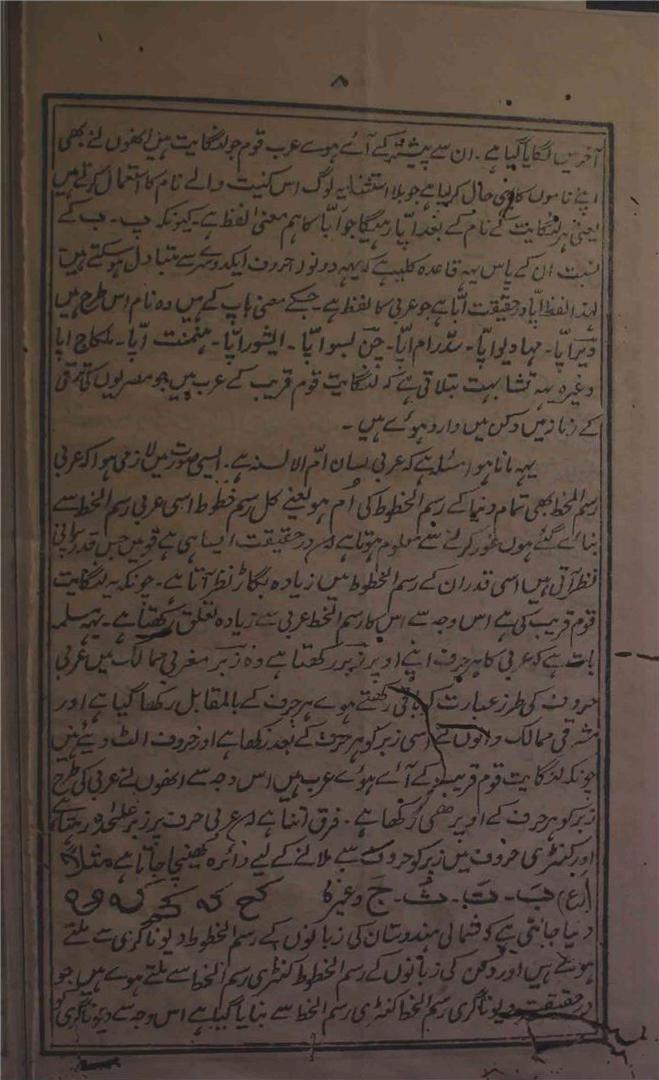 ۸
آخر میں لگایا گیا ہے۔ ان سے پیشتر کے آئے ہوے عرب قوم جو لنگایت ہیں انھوں نے بھی
اپنے ناموں کا وہی حال کر لیا ہے جو بلا استثنا یہ لوگ اس کنیت والے نام کا استعمال کرتے ہیں
یعنی ہر لنگایت کے نام کے بعد اپّا رہیگا جو ابّا کا ہم معنی لفظ ہے۔ کیونکہ پ۔ ب کے
نسبت ان کے پاس یہہ قاعدہ کلیہ ہے کہ یہہ دونوں حروف ایکدوسرے سے متبادل ہو سکتے ہیں
لہذا لفظ اپّا درحقیقت ابّا ہے جو عربی کا لفظ ہے۔ جسکے معنی باپ کے ہیں وہ نام اس طرح ہیں
ویرّاپّا۔ مہادیواپّا۔ سدّرام اپّا۔ چن بسواپّا۔ ایشوراپّا۔ ہنمنت اپّا۔ ملکاج اپا
وغیرہ یہہ تشابہت بتلاتی ہے کہ لنگایت قوم قریب کے عرب ہیں جو مصریوں کی ترقی
کے زمانہ میں دکن میں وارد ہوئے ہیں۔
یہہ مانا ہوا مسئلہ ہے کہ عربی لسان امّ الالسنہ ہے۔ ایسی صورت میں لازمی ہوا کہ عربی
رسم الخط بھی تمام دنیا کے رسم الخطوط کی اُم ہو یعنے کل رسم خطوط اسی عربی رسم الخط سے
بنائے گئے ہوں غور کرنے سے معلوم ہوتا ہے کہ درحقیقت ایسا ہی ہے قومیں جس قدر پرانی
نظر آتی ہیں اسی قدر ان کے رسم الخطوط میں زیادہ بگاڑ نظر آتا ہے۔ چونکہ یہ لنگایت
قوم قریب کی ہے اس وجہ سے اس کا رسم الخط عربی سے زیادہ تعلق رکھتا ہے۔ یہہ مسلمہ
بات ہے کہ عربی کا ہر حرف اپنے اوپر زبر رکھتا ہے وہ زبر مغربی ممالک میں عربی
حروف کی طرز عبارت کو باقی رکھتے ہوے ہر حرف کے بالمقابل رکھا گیا ہے اور
مشرقی ممالک والوں نے اسی زبر کو ہر حرف کے بعد رکھا ہے اور حروف الٹ دیئے ہیں
چونکہ لنگایت قوم قریب کے آئے ہوئے عرب ہیں اس وجہ سے انھوں نے عربی کی طرح
زبر کو ہر حرف کے اوپر ہی رکھا ہے۔ فرق اتنا ہے کہ عربی حرف پر زبر علیحدہ رہتا ہے
اور کنٹری حروف میں زبر کو حروف سے ملانے کے لیے دائرہ کھینچا جاتا ہے مثلاً
(ع) بَ۔ تَ۔ ثَ۔ جَ وغیرہ
دنیا جانتی ہے کہ شمالی ہندوستان کی زبانوں کے رسم الخطوط دیوناگری سے ملتے
ہوئے ہیں اور دکن کی زبانوں کے رسم الخطوط کنٹری رسم الخط سے ملتے ہوے ہیں جو
درحقیقت دیوناگری رسم الخط کنٹری رسم الخط سے بنایا گیا ہے اس وجہ سے دیوناگری